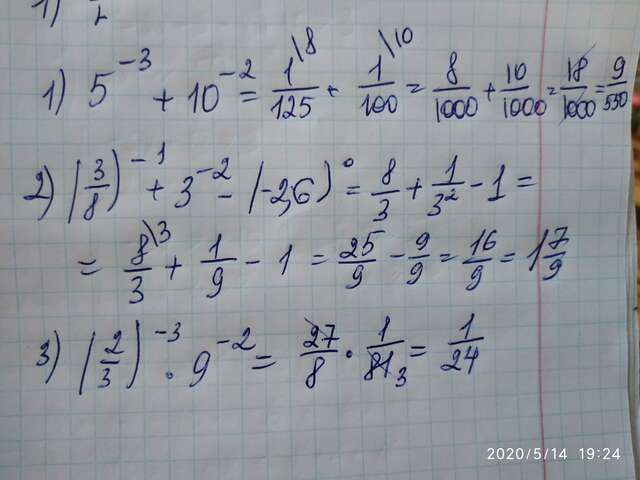 1) 5^{-3} + 10^{-2} = \frac{1}{125}^{\8} + \frac{1}{100}^{\10} = \frac{8}{1000} + \frac{10}{1000} = \frac{18}{1000} = \frac{9}{550}
2) (\frac{3}{8})^{-1} + 3^{-2} - (-2,6)^0 = \frac{8}{3} + \frac{1}{3^2} - 1 =
= \frac{8}{3}^{\3} + \frac{1}{9} - 1 = \frac{25}{9} - \frac{9}{9} = \frac{16}{9} = 1\frac{7}{9}
3) (\frac{2}{3})^{-3} · 9^{-2} = \frac{27}{8} · \frac{1}{81}_3 = \frac{1}{24}
2020/5/14 19:24